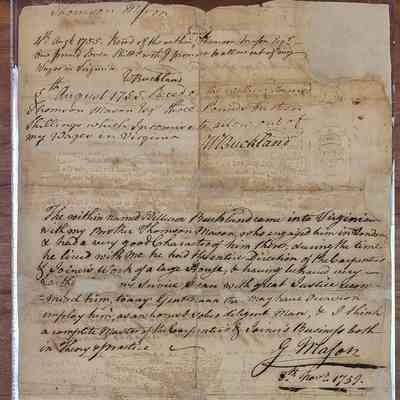 Thomson Mason
4th Augt 1755. Recd of the within named Thomson Mason Esqr
One pound
Wages in Virginia
W Buckland
5th August 1755. Recd of the within named
Thomson Mason Esqr three Pounds
Shillings which I promise to allow out of
my Wages in Virginia
WBuckland
The within named William Buckland came into Virginia
with my Brother Thomson Mason, who engaged him in London
& had a very good Character of him there; during the time
he lived with me he had the entire Direction of the Carpenter's
& Joiner's Work of a large House; & having behaved very
faithfully in my Service, I can with great Justice recom-
-mend him to any Gentleman that may have Occasion to
employ him, as an honest sober diligent Man, & I think
a compleat Master of the Carpenter's & Joiner's Business both
in Theory & Practice
G Mason
8th Novr 1759.